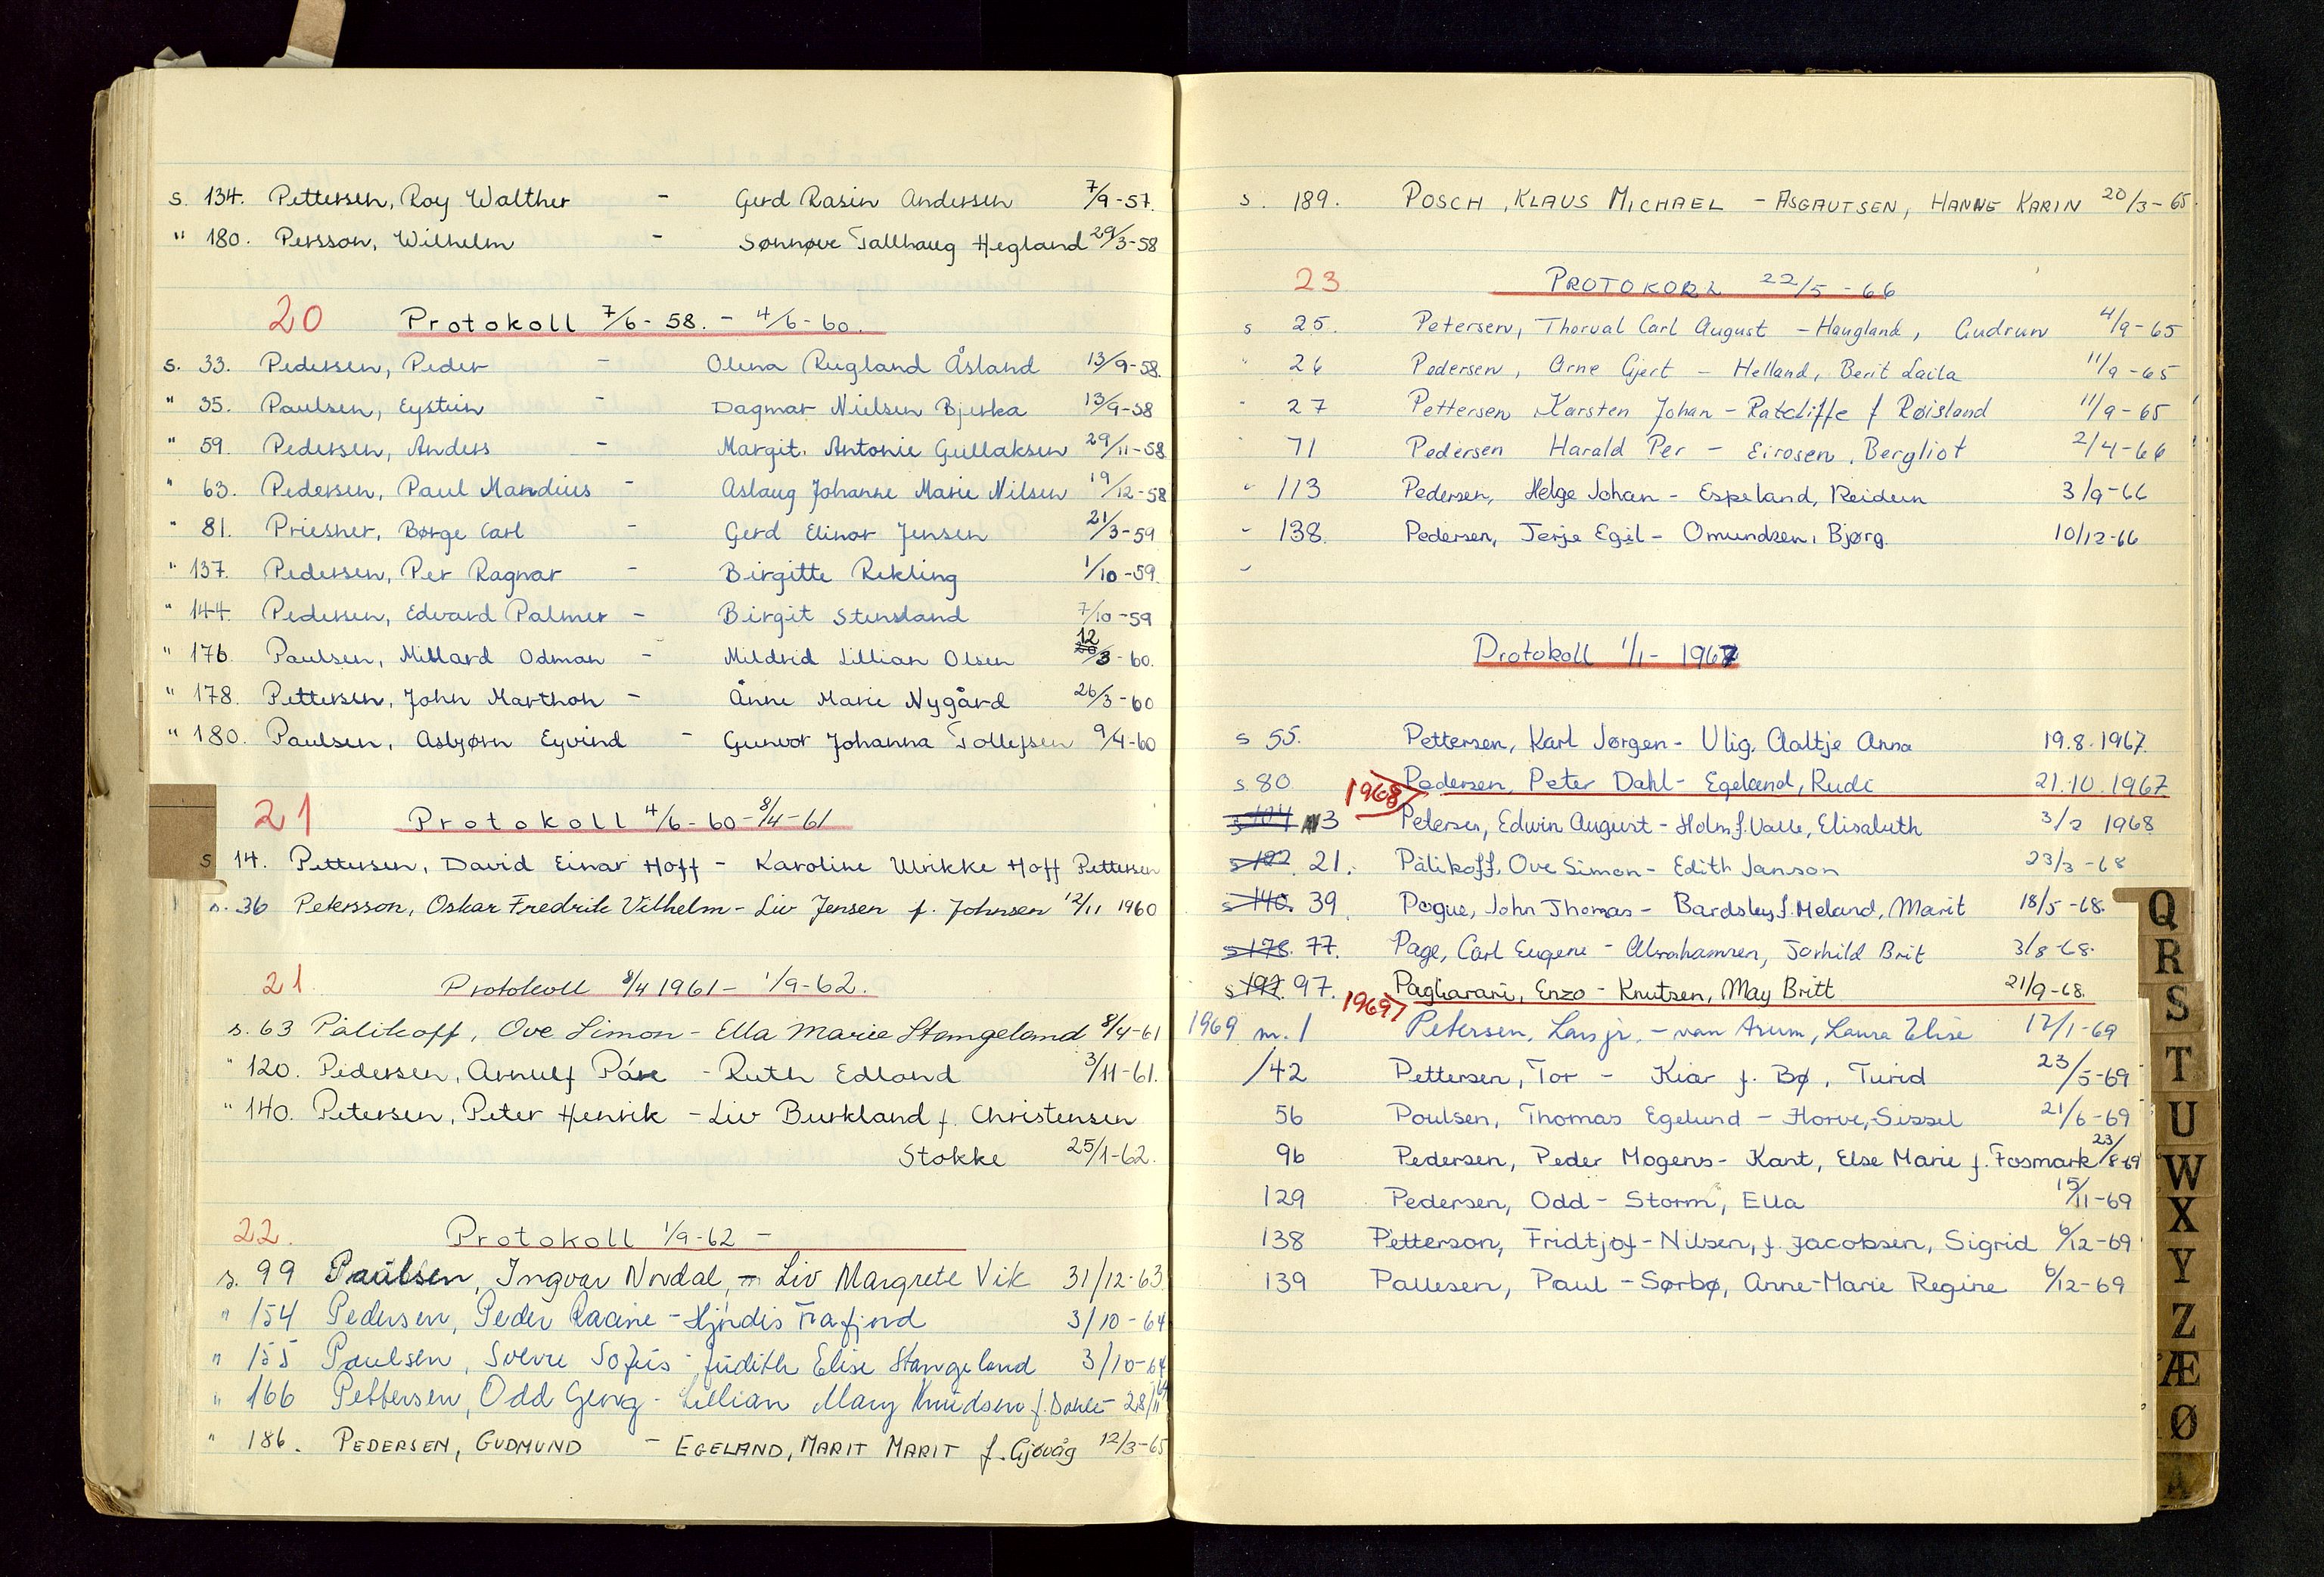 s. 134. Pettersen, Roy Walther - Gerd Rasin Andersen 7/9-57.
" 180. Persson, Wilhelm - Sønnøve Tallhaug Hegland 29/3-58
20 Protokoll 7/6-58. - 4/6-60.
s. 33. Pedersen, Peder - Olena Rugland Åsland 13/9-58.
" 35. Paulsen, Eystein - Dagmar Nielsen Bjerka 13/9-58
" 59. Pedersen, Anders - Margit. Antonie Gullaksen 29/11-58
" 63. Pedersen, Paul Mandius - Aslaug Johanne Marie Nilsen 19/12-58
" 81. Priesner, Børge Carl - Gerd Elinor Jensen 21/3-59
" 137. Pedersen, Per Ragnar - Birgitte Rekling 1/10-59.
" 144. Pedersen, Edvard Palmer - Birgit Stensland 7/10-59
" 176. Paulsen, Millard Odman - Mildrid Lillian Olsen 12/3-60.
" 178. Pettersen, John Marthon - Anne Marie Nygård 26/3-60
" 180. Paulsen, Asbjørn Eyvind - Gunvor Johanna Tollefsen 9/4-60
21 Protokoll 4/6-60-8/4-61
s 14. Pettersen, David Einar Hoff - Karoline Ulrikke Hoff Pettersen
s. 36 Petersson, Oskar Fredrik Vilhelm - Liv Jensen f. Johnsen 12/11 1960
21. Protokoll 8/4 1961 - 1/9-62.
s. 63 Pälikoff, Ove Simon - Ella Marie Stangeland 8/4-61
" 120. Pedersen, Arnulf Påre - Ruth Edland 3/11-61.
" 140. Petersen, Peter Henrik - Liv Burkland f. Christensen
Stokke 25/1-62.
22. Protokoll 1/9-62 -
s. 99 Paulsen, Ingvar Nordal, - Liv Margrete Vik 31/12-63
" 154 Pedersen, Peder Raaine - Hjørdis Frafjord 3/10-64
" 155 Paulsen, Sverre Sofus - Judith Elise Stangeland 3/10-64
" 166 Pettersen, Odd Georg - Lillian Mary Knudsen f. Dahle - 28/11 64
" 186. PEDERSEN, GUDMUND - EGELAND, MARIT MARIT f. Gjøvåg 12/3-65
s. 189. POSCH, KLAUS MICHAEL - ASGAUTSEN, HANNE KARIN 20/3-65.
23 PROTOKOLL 22/5-66
s 25. Petersen, Thorval Carl August - Haugland, Gudrun 4/9-65
" 26 Pedersen, Arne Gjert - Helland, Berit Laila 11/9-65
" 27 Pettersen Karsten Johan - Ratcliffe f Røisland 11/9-65
" 71 Pedersen Harald Per - Eirosen, Bergliot 2/4-66
" 113 Pedersen, Helge Johan - Espeland, Reidun 3/9-66
" 138. Pedersen, Terje Egil - Omundsen, Bjørg. 10/12-66
"
Protokoll 1/1-1967
s 55. Pettersen, Karl Jørgen - Ulig, Aaltje Anna 19.8.1967.
s. 80 Pedersen, Peter Dahl - Egeland, Rudi 21.10.1967
1968
s 104 3 Petersen, Edwin August - Holm f. Valle, Elisabeth 3/2 1968
s 122. 21. Pälikoff, Ove Simon - Edith Janson 23/3-68
s 140. 39. Pogue, John Thomas - Bardsley f. Meland, Marit 18/5-68.
s 178. 77. Page, Carl Eugene - Abrahamsen, Torhild Brit 3/8-68.
s 197. 97. Pagliarani, Enzo - Knutsen, May Britt 21/9-68.
1969
1969 nr. 1 Petersen, Lars jr. - van Arum, Laura Elise 17/1-69
/42 Pettersen, Tor - Kiær f. Bø, Turid 23/5-69
56 Poulsen, Thomas Egelund - Horve, Sissel 21/6-69
96 Pedersen, Peder Mogens - Kant, Else Marie f. Fosmark 23/8-69
129 Pedersen, Odd - Storm, Ella 15/11-69
138 Petterson, Fridtjof - Nilsen, f. Jacobsen, Sigrid 6/12-69
139 Pallesen, Paul - Sørbø, Anne-Marie Regine 6/12-69
Q
R
S
T
U
W
X
Y
Z
Æ
Ø